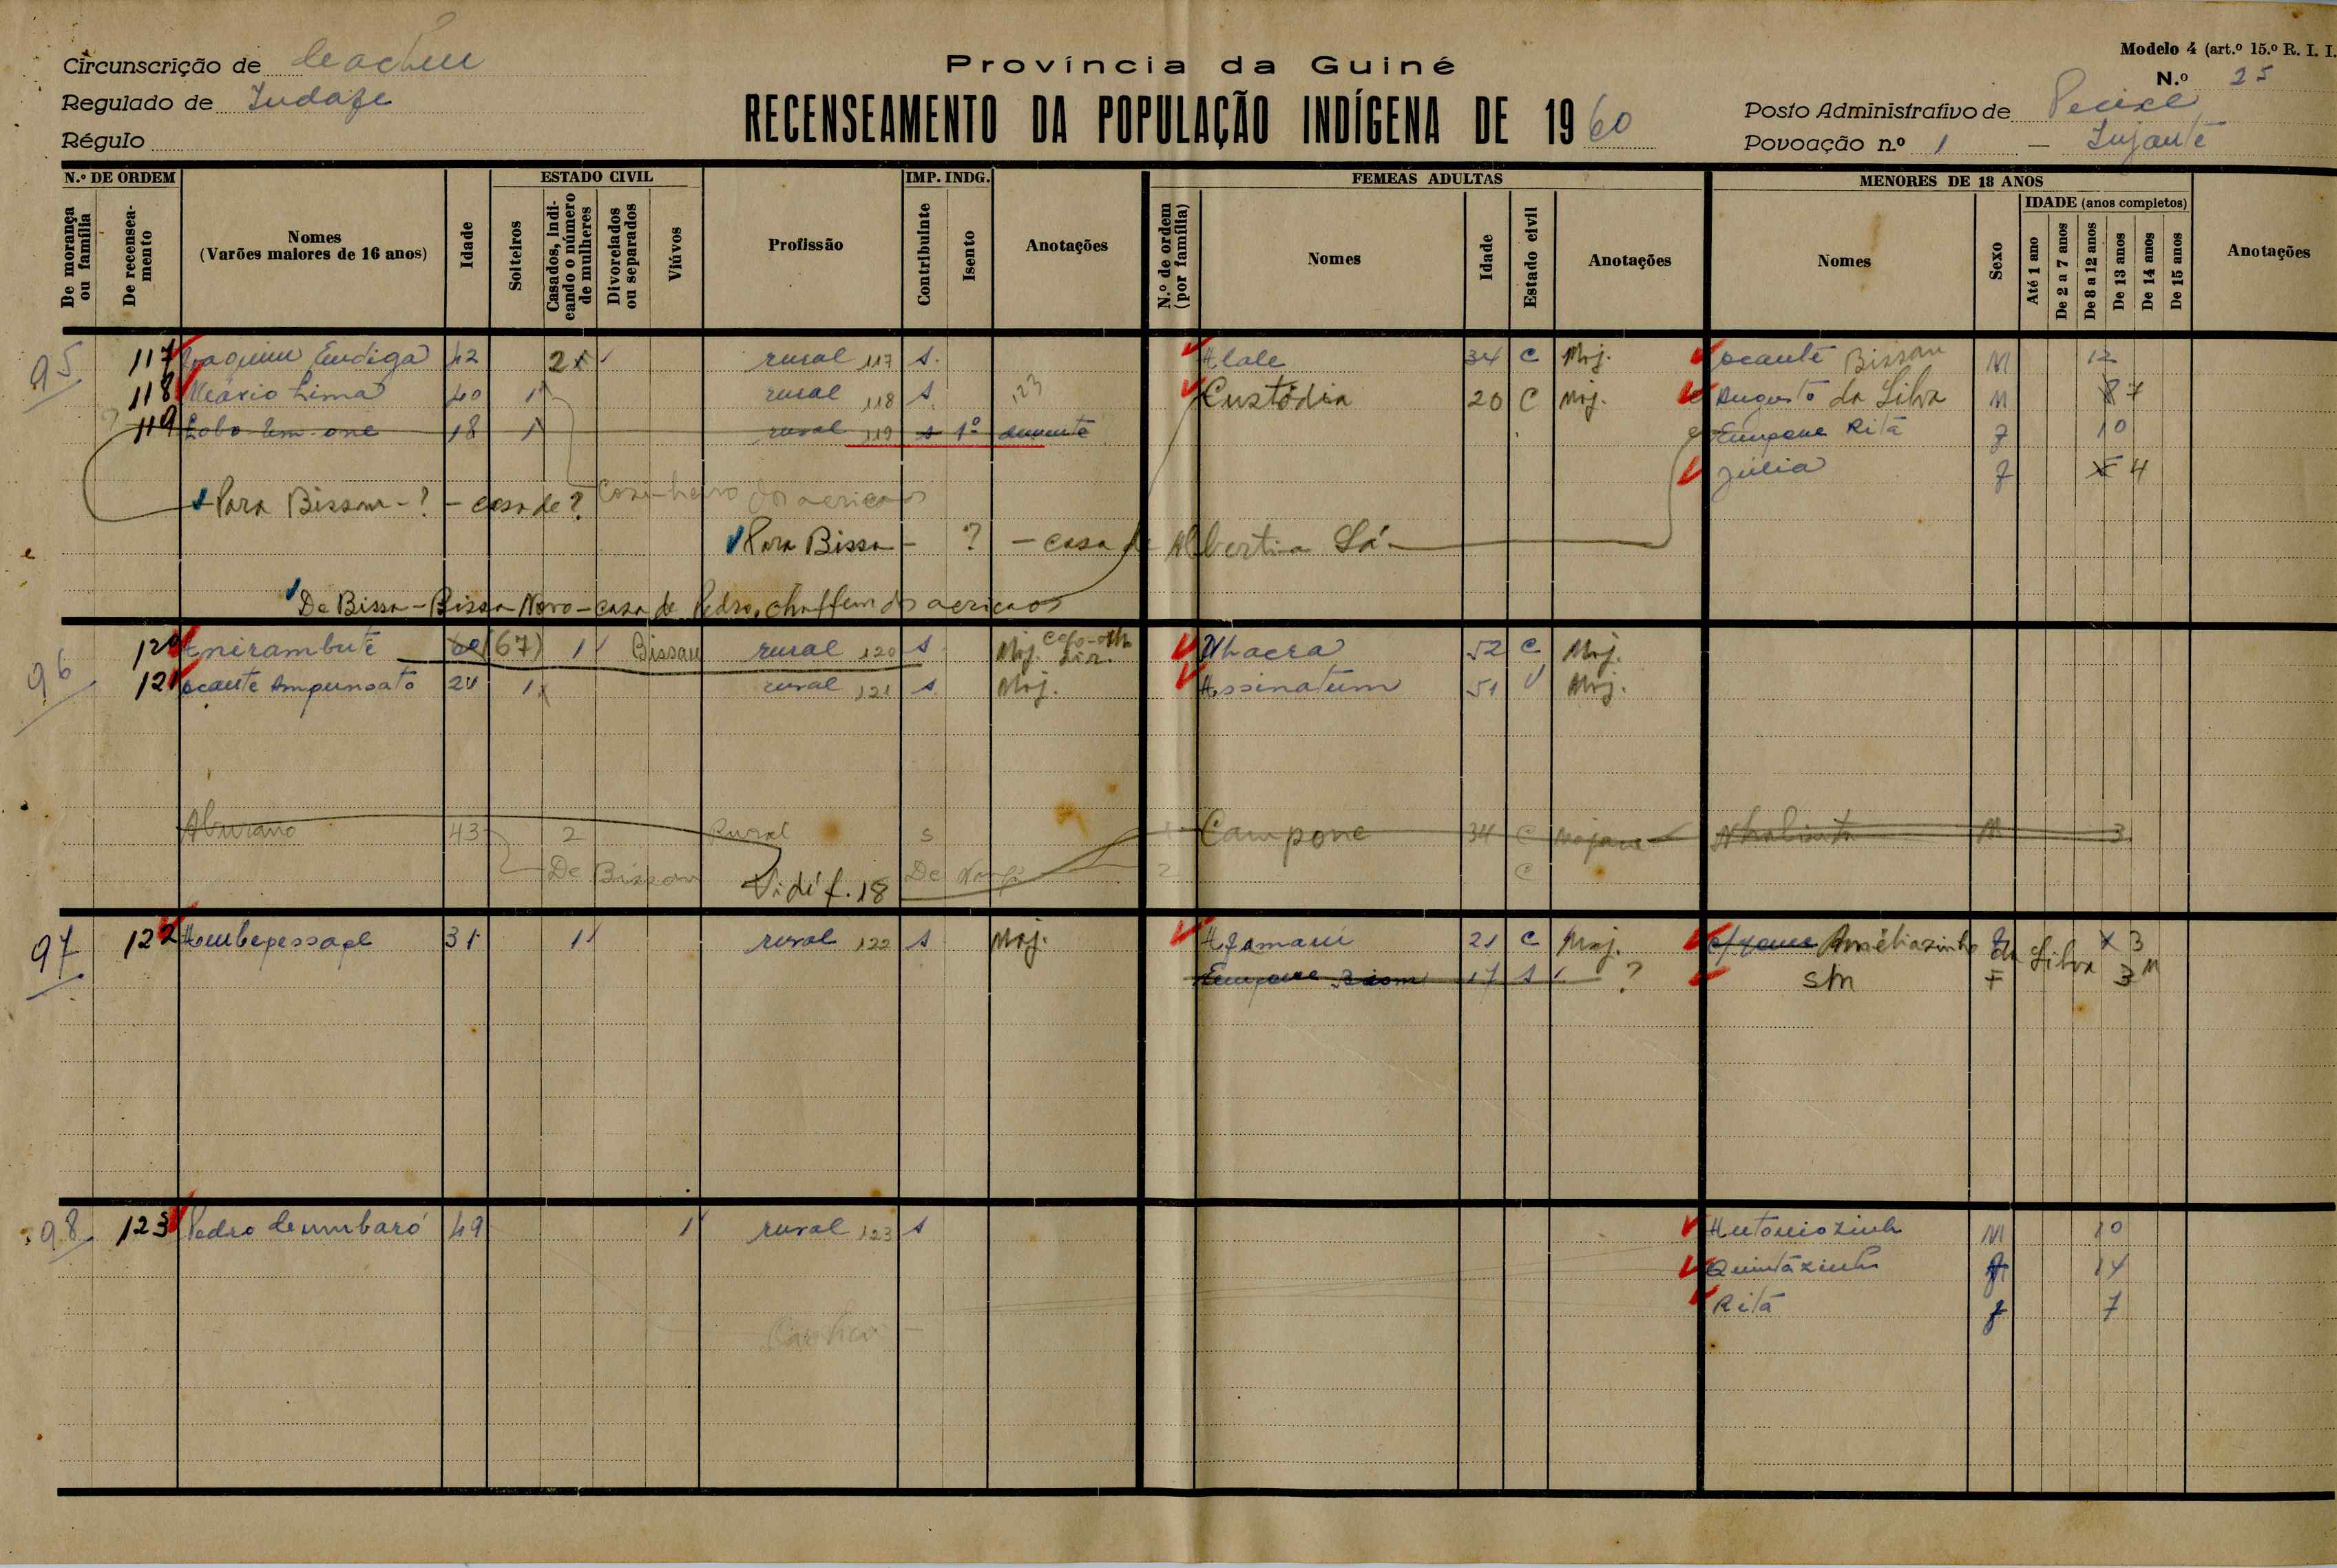 Circunscrição de Cacheu
Regulado de Indafe
Régulo
Província da Guiné
RECENSEAMENTO DA POPULAÇÃO INDÍGENA DE 1960
Modelo 4 (art.º 15.º R. I. I.
N.º 25
Posto Administrativo de Pecixe
Povoação n.º 1 — Injante
N.º DE ORDEM
De morança ou família
De recenseamento
Nomes
(Varões maiores de 16 anos)
Idade
ESTADO CIVIL
Solteiros
Casados, indicando o número de mulheres
Divorciados ou separados
Viúvos
Profissão
IMP. INDG.
Contribuinte
Isento
Anotações
FEMEAS ADULTAS
N.º de ordem (por família)
Nomes
Idade
Estado civil
Anotações
MENORES DE 18 ANOS
Nomes
Sexo
IDADE (anos completos)
Até 1 ano
De 2 a 7 anos
De 8 a 12 anos
De 13 anos
De 14 anos
De 15 anos
Anotações
95 117 Joaquim Endiga 42 2 rural 117 s. Alale 34 C Moj. Ocante Bissau M 12
118 Mário Lima 40 1 rural 118 s 123 Custódia 20 C Moj. Augusto da Silva M 8 7
119 Lobo Em-one 18 1 rural 119 s 1º demente Empone Ritá F 10
Júlia F 4
Para Bissau - ? - casa de ? Cozinheiro dos aericaos
Para Bissa - ? - casa de Albertina Sá
De Bissa - Bissa Novo - casa de Pedro, chaffeur dos aericaos
96 120 Enirambute (67) 1 Bissau rural 120 s Moj. Nhacra 52 C Moj.
121 Ocante Ampunsato 24 1 rural 121 s Moj. Assinatum 51 V Moj.
43 2 Rural s 1 Campone 34 C Mojane M 3
De Bissau Vidé f. 18 De 2 C
97 122 31 1 rural 122 s Moj. 21 C Moj. Améliazinha da Silva 3
Empone 17 s ? SM F 3 M
98 123 Pedro 49 1 rural 123 s Antoniozinh M 10
Quintázinh F 14
Ritá F 7